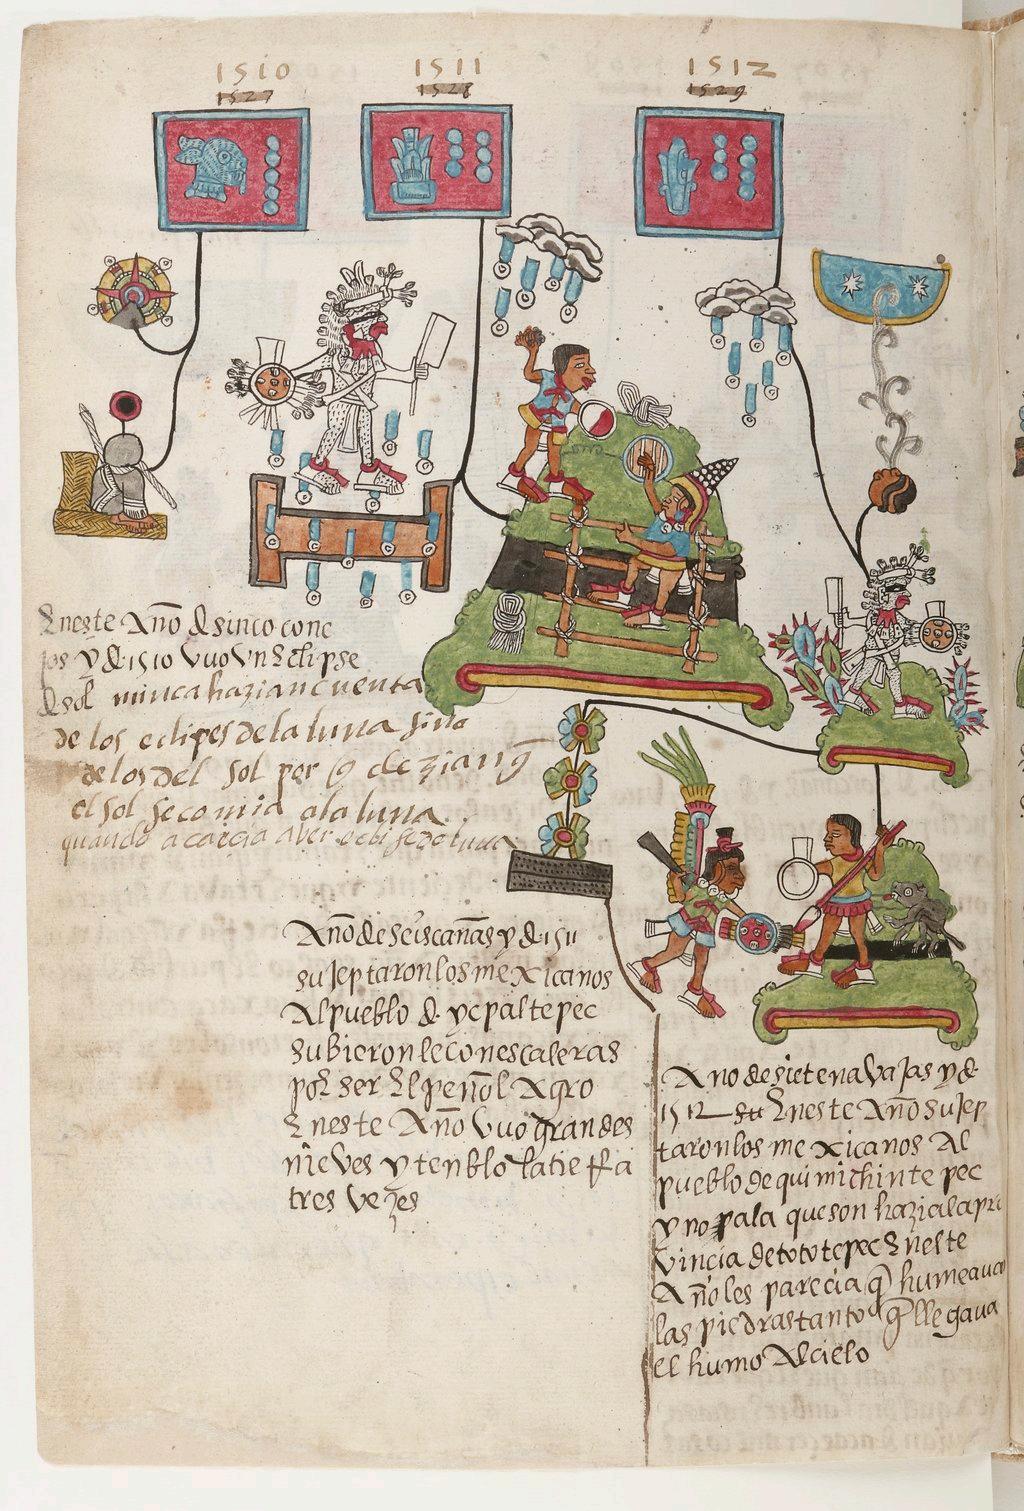 1510
1527
1511
1528
1512
1529
Eneste Año d sinco cone
jos y d 1510 vuo vn Eclipse
d sol nunca hazian cuenta
de los eclipses de la luna sino
de los del sol por q dezian q
el sol se comia a la luna
quando acaecia aver eclipse de luna
Año de seis cañas y d 1511
sujeptaron los mexicanos
Al pueblo d ycpaltepec
subieronle con escaleras
por ser El peñol Agro
Eneste Año vuo grandes
nieves y tenblo la tierra
tres vezes
Ano de siete navajas y d
1512 Eneste Año sujep
taron los mexicanos Al
pueblo de quimichintepec
y nopala que son hazia la pro
vincia de tototepec Eneste
Año les parecia q humeava
las piedras tanto q llegava
el humo Al cielo